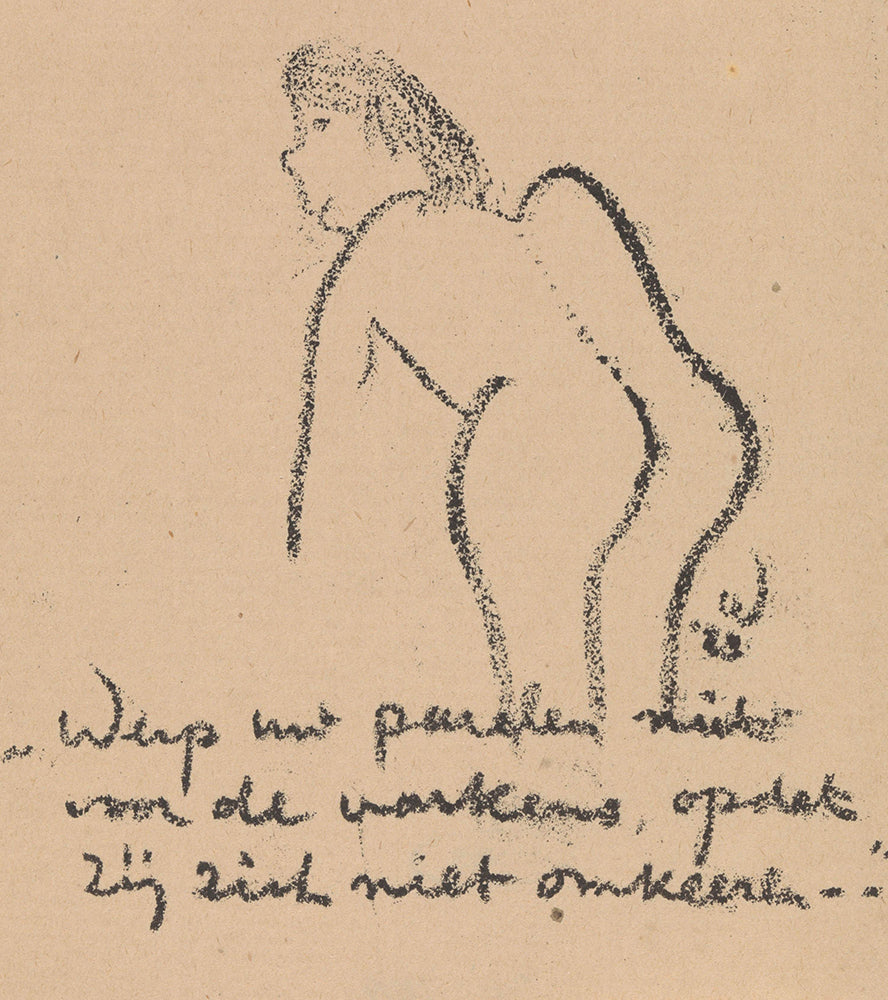 - Werp uw paarlen niet
voor de varkens, opdat
zij zich niet omkeeren - -